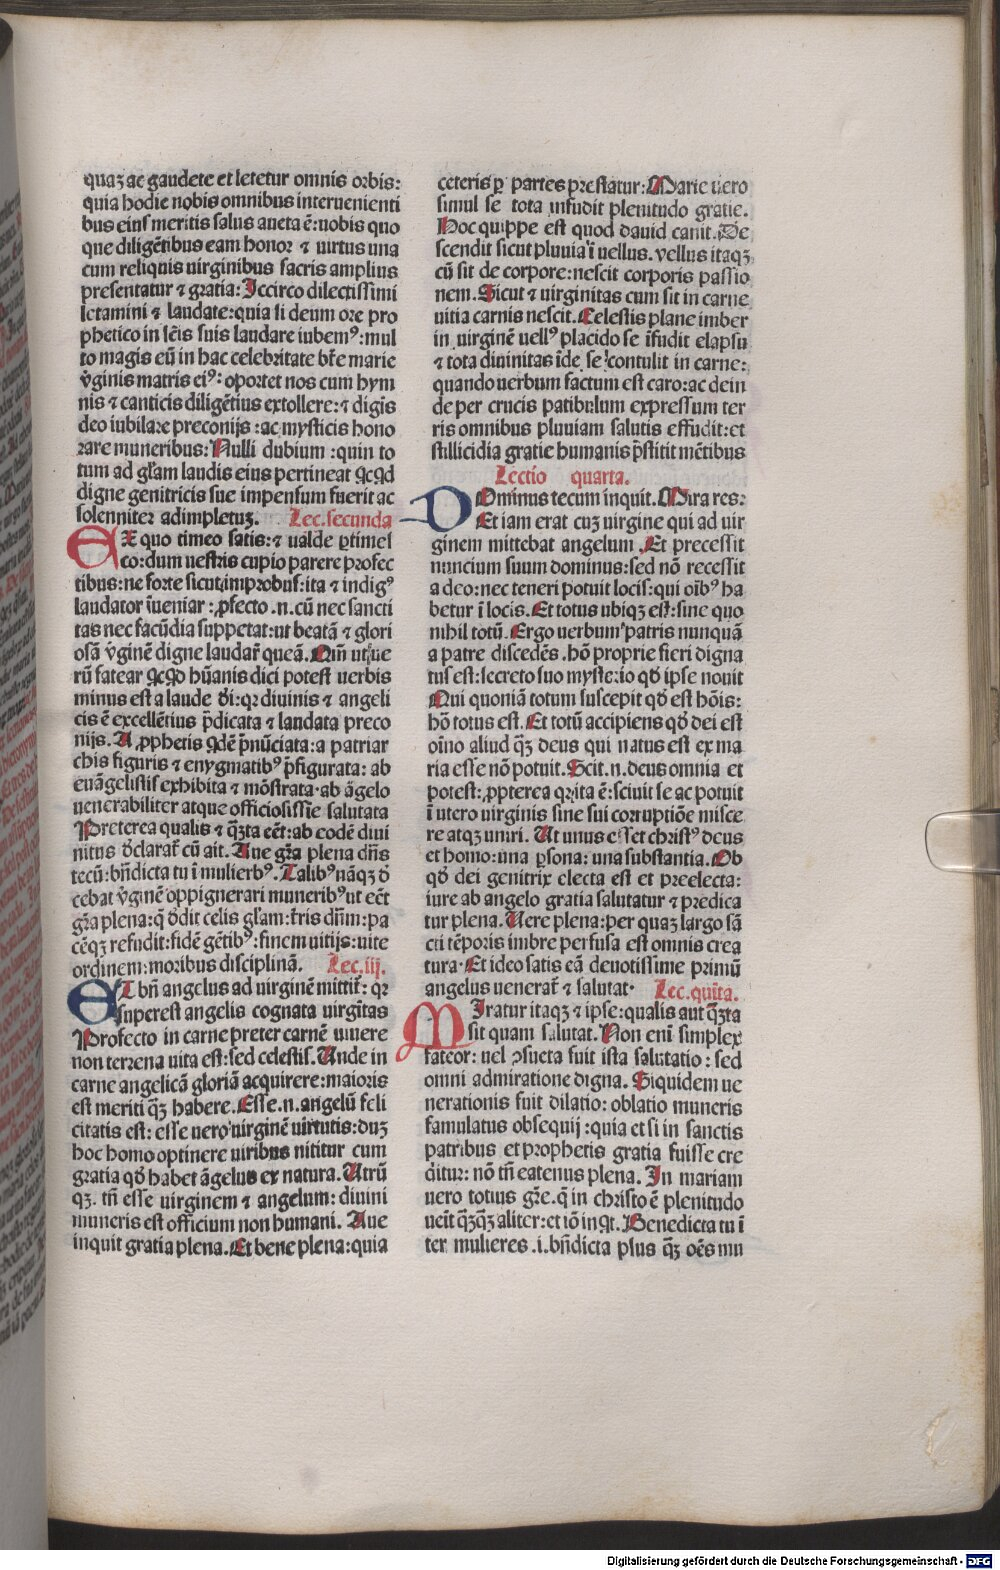 quaꝫ ac gaudete et letetur omnis orbis:
quia hodie nobis omnibus interuenienti
bus eius meritis salus aucta ē: nobis quo
que diligētibus eam honor ⁊ uirtus una
cum reliquis uirginibus sacris amplius
presentatur ⁊ gratia: Iccirco dilectissimi
letamini ⁊ laudate: quia si deum ore pro
phetico in scīs suis laudare iubemꝰ: mul
to magis eū in hac celebritate bt̄e marie
v̄ginis matris eiꝰ: oportet nos cum hym
nis ⁊ canticis diligētius extollere: ⁊ digīs
deo iubilare preconijs: ac mysticis hono
rare muneribus: Nulli dubium: quin to
tum ad gl̄am laudis eius pertineat qcqd
digne genitricis sue impensum fuerit ac
solenniter adimpletuꝫ. Lec. secunda
EX quo timeo satis: ⁊ ualde ꝑtimes
co: dum uestris cupio parere profec
tibus: ne forte sicut improbus: ita ⁊ indigꝰ
laudator īueniar: ꝓfecto .n. cū nec sancti
tas nec facūdia suppetat: ut beatā ⁊ glori
osā v̄ginē digne laudar̄ queā. Qm̄ ut ue
rū fatear qcqd hūanis dici potest uerbis
minus est a laude d̄i: qꝛ diuinis ⁊ angeli
cis ē excellētius p̄dicata ⁊ laudata preco
nijs. A ꝓphetis qdē p̄nūciata: a patriar
chis figuris ⁊ enygmatibꝰ p̄figurata: ab
euāgelistis exhibita ⁊ mōstrata: ab āgelo
uenerabiliter atque officiosissīe salutata
Preterea qualis ⁊ q̄ꝫta eēt: ab codē diui
nitus d̄clarat̄ cū ait. Aue gr̄a plena dn̄s
tecū: bn̄dicta tu ī mulierbꝰ. Talibꝰ nāqꝫ d̄
cebat v̄ginē oppignerari muneribꝰ ut eēt
gr̄a plena: q̄ d̄dit celis gl̄am: t̄ris dn̄m: pa
cēqꝫ refudit: fidē gētibꝰ: finem uitijs: uite
ordinem: moribus disciplinā. Lec. iij.
ET bn̄ angelus ad uirginē mittit̄: qꝛ
super est angelis cognata uirgītas
Profecto in carne preter carnē uiuere
non terrena uita est: sed celestis. Unde in
carne angelicā gloriā acquirere: maioris
est meriti q̄ꝫ habere. Esse .n. angelū feli
citatis est: esse uero uirginē uirtutis: duꝫ
hoc homo optinere uiribus nititur cum
gratia qd̄ habet āgelus ex natura. Utrū
qꝫ. tn̄ esse uirginem ⁊ angelum: diuini
muneris est officium non humani. Aue
inquit gratia plena. Et bene plena: quia
ceteris ꝑ partes prestatur: Marie uero
simul se tota infudit plenitudo gratie.
Hoc quippe est quod dauid canit. De
scendit sicut pluuia ī uellus. vellus itaqꝫ
cū sit de corpore: nescit corporis passio
nem. Sicut ⁊ uirginitas cum sit in carne
uitia carnis nescit. Celestis plane imber
in uirginē uellꝰ placido se īfudit elapsu
⁊ tota diuinitas īde se contulit in carne:
quando uerbum factum est caro: ac dein
de per crucis patibulum expressum ter
ris omnibus pluuiam salutis effudit: et
stillicidia gratie humanis p̄stitit mētibus
Lectio quarta.
DOminus tecum inquit. Mira res:
Et iam erat cuꝫ uirgine qui ad uir
ginem mittebat angelum. Et precessit
nuncium suum dominus: sed nō recessit
a deo: nec teneri potuit locis: qui oībꝰ ha
betur ī locis. Et totus ubiqꝫ est: sine quo
nihil totū. Ergo uerbum patris nunquā
a patre discedēs. hō proprie fieri digna
tus est: secreto suo mysterio qd̄ ipse nouit
Qui quoniā totum suscepit qd̄ est hōis:
hō totus est. Et totū accipiens qd̄ dei est
oīno aliud q̄ꝫ deus qui natus est ex ma
ria esse nō potuit. Scit .n. deus omnia et
potest: ꝓpterea qꝛ ita ē: sciuit se ac potuit
ī utero uirginis sine sui corruptiōe misce
re atqꝫ uniri. Ut unus esset christꝰ deus
et homo: una ꝑsona: una substantia. Ob
qd̄ dei genitrix electa est et preelecta:
iure ab angelo gratia salutatur ⁊ predica
tur plena. Uere plena: per quaꝫ largo sā
cti tēporis imbre perfusa est omnis crea
tura. Et ideo satis eā deuotissime primū
angelus uenerat̄ ⁊ salutat. Lec. quīta.
MIratur itaqꝫ ⁊ ipse: qualis aut q̄ꝫta
sit quam salutat. Non eni simplex
fateor: uel ꝯsueta fuit ista salutatio: sed
omni admiratione digna. Siquidem ue
nerationis fuit dilatio: oblatio muneris
famulatus obsequij: quia et si in sanctis
patribus et prophetis gratia fuisse cre
ditur: nō tn̄ eatenus plena. In mariam
uero totius gr̄e. q̄ in christo ē plenitudo
ueit q̄ꝫq̄ꝫ aliter: et iō inqt. Benedicta tu ī
ter mulieres .i. bn̄dicta plus q̄ꝫ oēs mu
Digitalisierung gefördert durch die Deutsche Forschungsgemeinschaft - DFG